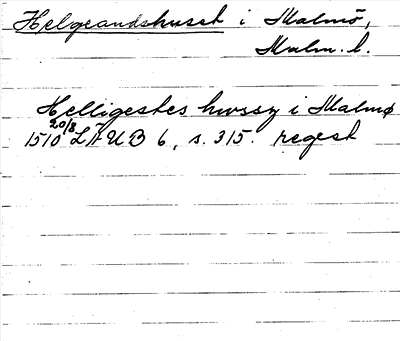 Helgeandshuset i Malmö,
Malm. l.
Helligestes hwssz i Malmø
1510 20/8 LÆUB 6, s. 315. regest